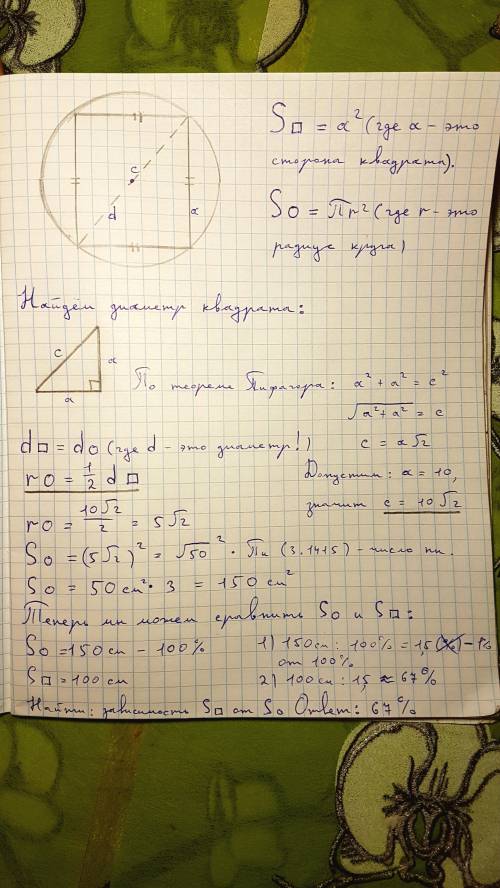 c
d
a
S□ = a² (где a - это
сторона квадрата).
S○ = Πr² (где r - это
радиус круга)
Найдём диаметр квадрата:
c
a
a
По теореме Пифагора: a² + a² = c²
√a² + a² = c
c = a√2
d□ = d○ (где d - это диаметр!)
r○ = 1/2 d□
Допустим: a = 10,
значит c = 10√2
r○ = 10√2/2 = 5√2
S○ = (5√2)² = √50² · Пи (3.1415) - число пи.
S○ = 50 см² · 3 = 150 см²
Теперь мы можем сравнить S○ и S□:
S○ = 150 см - 100%
S□ = 100 см
1) 150 см : 100% = 1,5 - 1%
от 100%
2) 100 см : 1,5 ≈ 67%
Найти: зависимость S□ от S○ Ответ: 67%